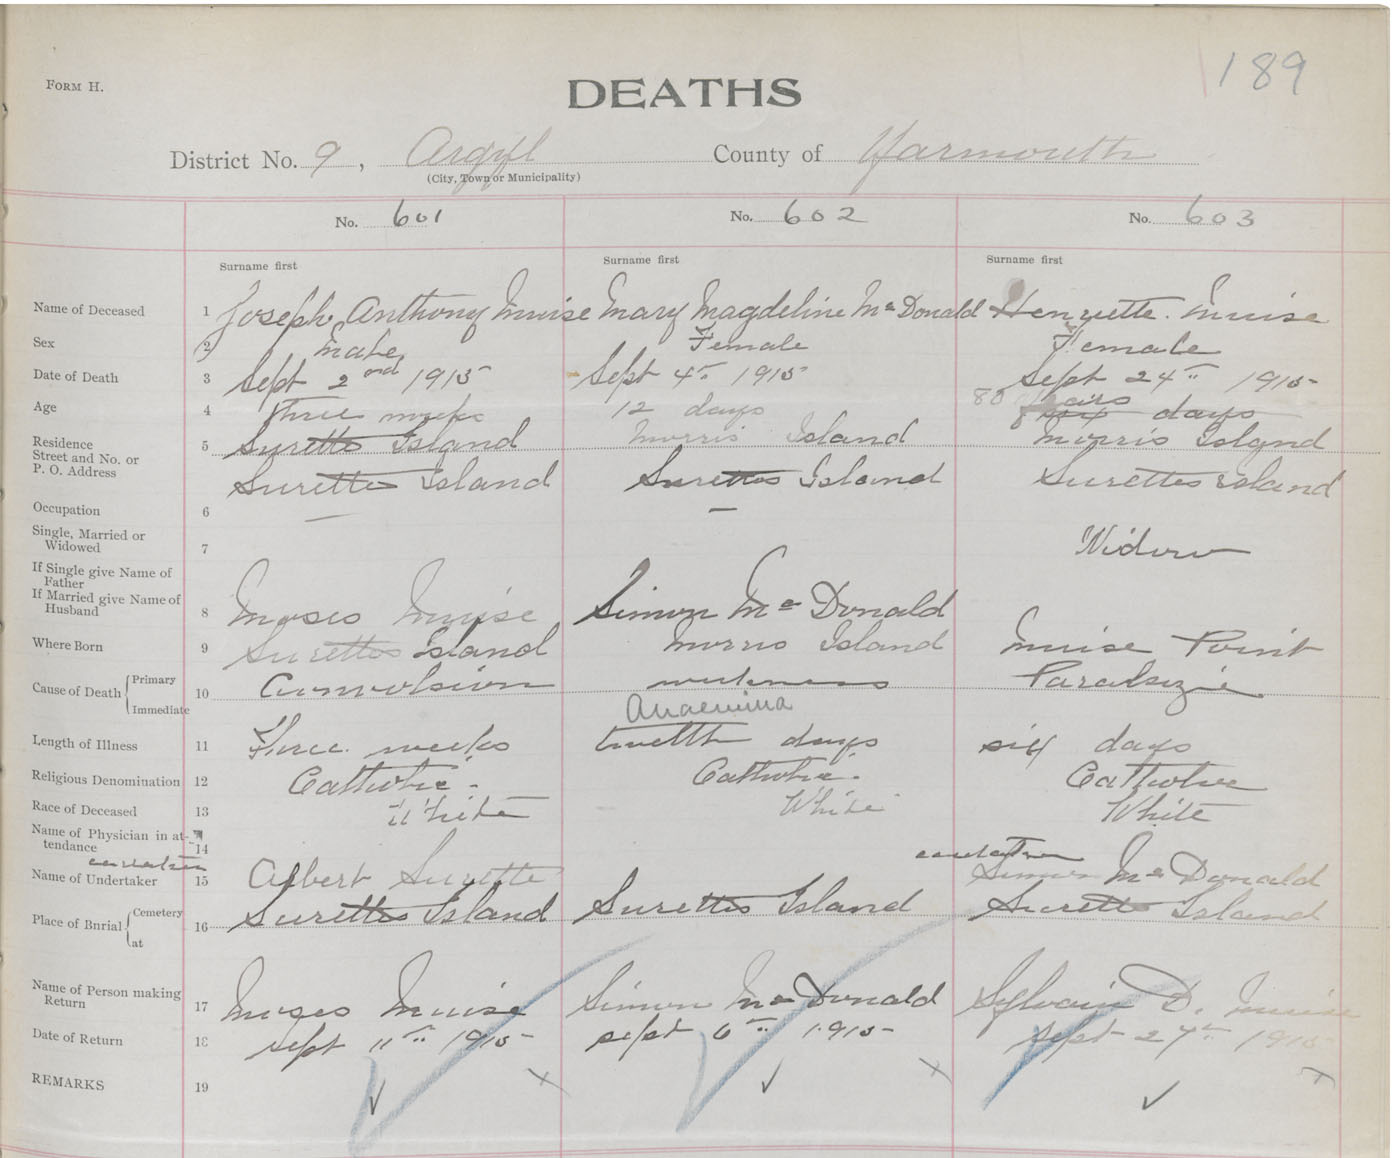 189
FORM H.
DEATHS
District No. 9, Argyl County of Yarmouth
(City, Town or Municipality)
No. 601 No. 602 No. 603
Surname first Surname first Surname first
Name of Deceased 1 Joseph Anthony Muise Mary Magdeline Mc Donald Henryette Muise
Sex 2 Male Female Female
Date of Death 3 Sept 2nd 1915 Sept 4th 1915 Sept 24th 1915
Age 4 three weeks 12 days 80 years six days
Residence Street and No. or P. O. Address 5 Surettes Island Morris Island Morris Island
Surettes Island Surettes Island Surettes Island
Occupation 6 — —
Single, Married or Widowed 7 Widow
If Single give Name of Father
If Married give Name of Husband 8 Moses Muise Simon Mc Donald
Where Born 9 Surettes Island Morris Island Muise Point
Cause of Death { Primary Immediate 10 Convolsion weakness Paralsizie
Anaemina
Length of Illness 11 Three weeks twelth days six days
Religious Denomination 12 Catholic Catholic Catholic
Race of Deceased 13 White White White
Name of Physician in attendance 14
Name of Undertaker 15 Albert Surette Simon Mc Donald
Place of Bnrial { Cemetery at 16 Surettes Island Surettes Island Surettes Island
Name of Person making Return 17 Moses Muise Simon Mc Donald Sylvain D. Muise
Date of Return 18 Sept 11th 1915 Sept 6th 1915 Sept 27th 1915
REMARKS 19